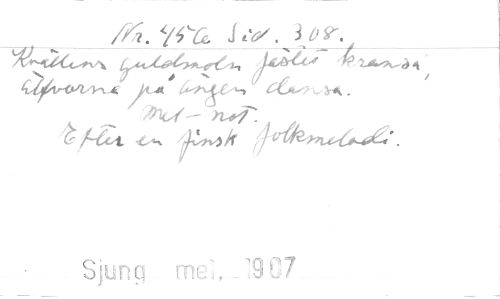 Nr. 456 Sid. 308.
Kvällens guldmoln fästet kransa,
älfvorna på ängen dansa.
Mel-not.
Efter en finsk folkmelodi.
Sjung mei, 1907